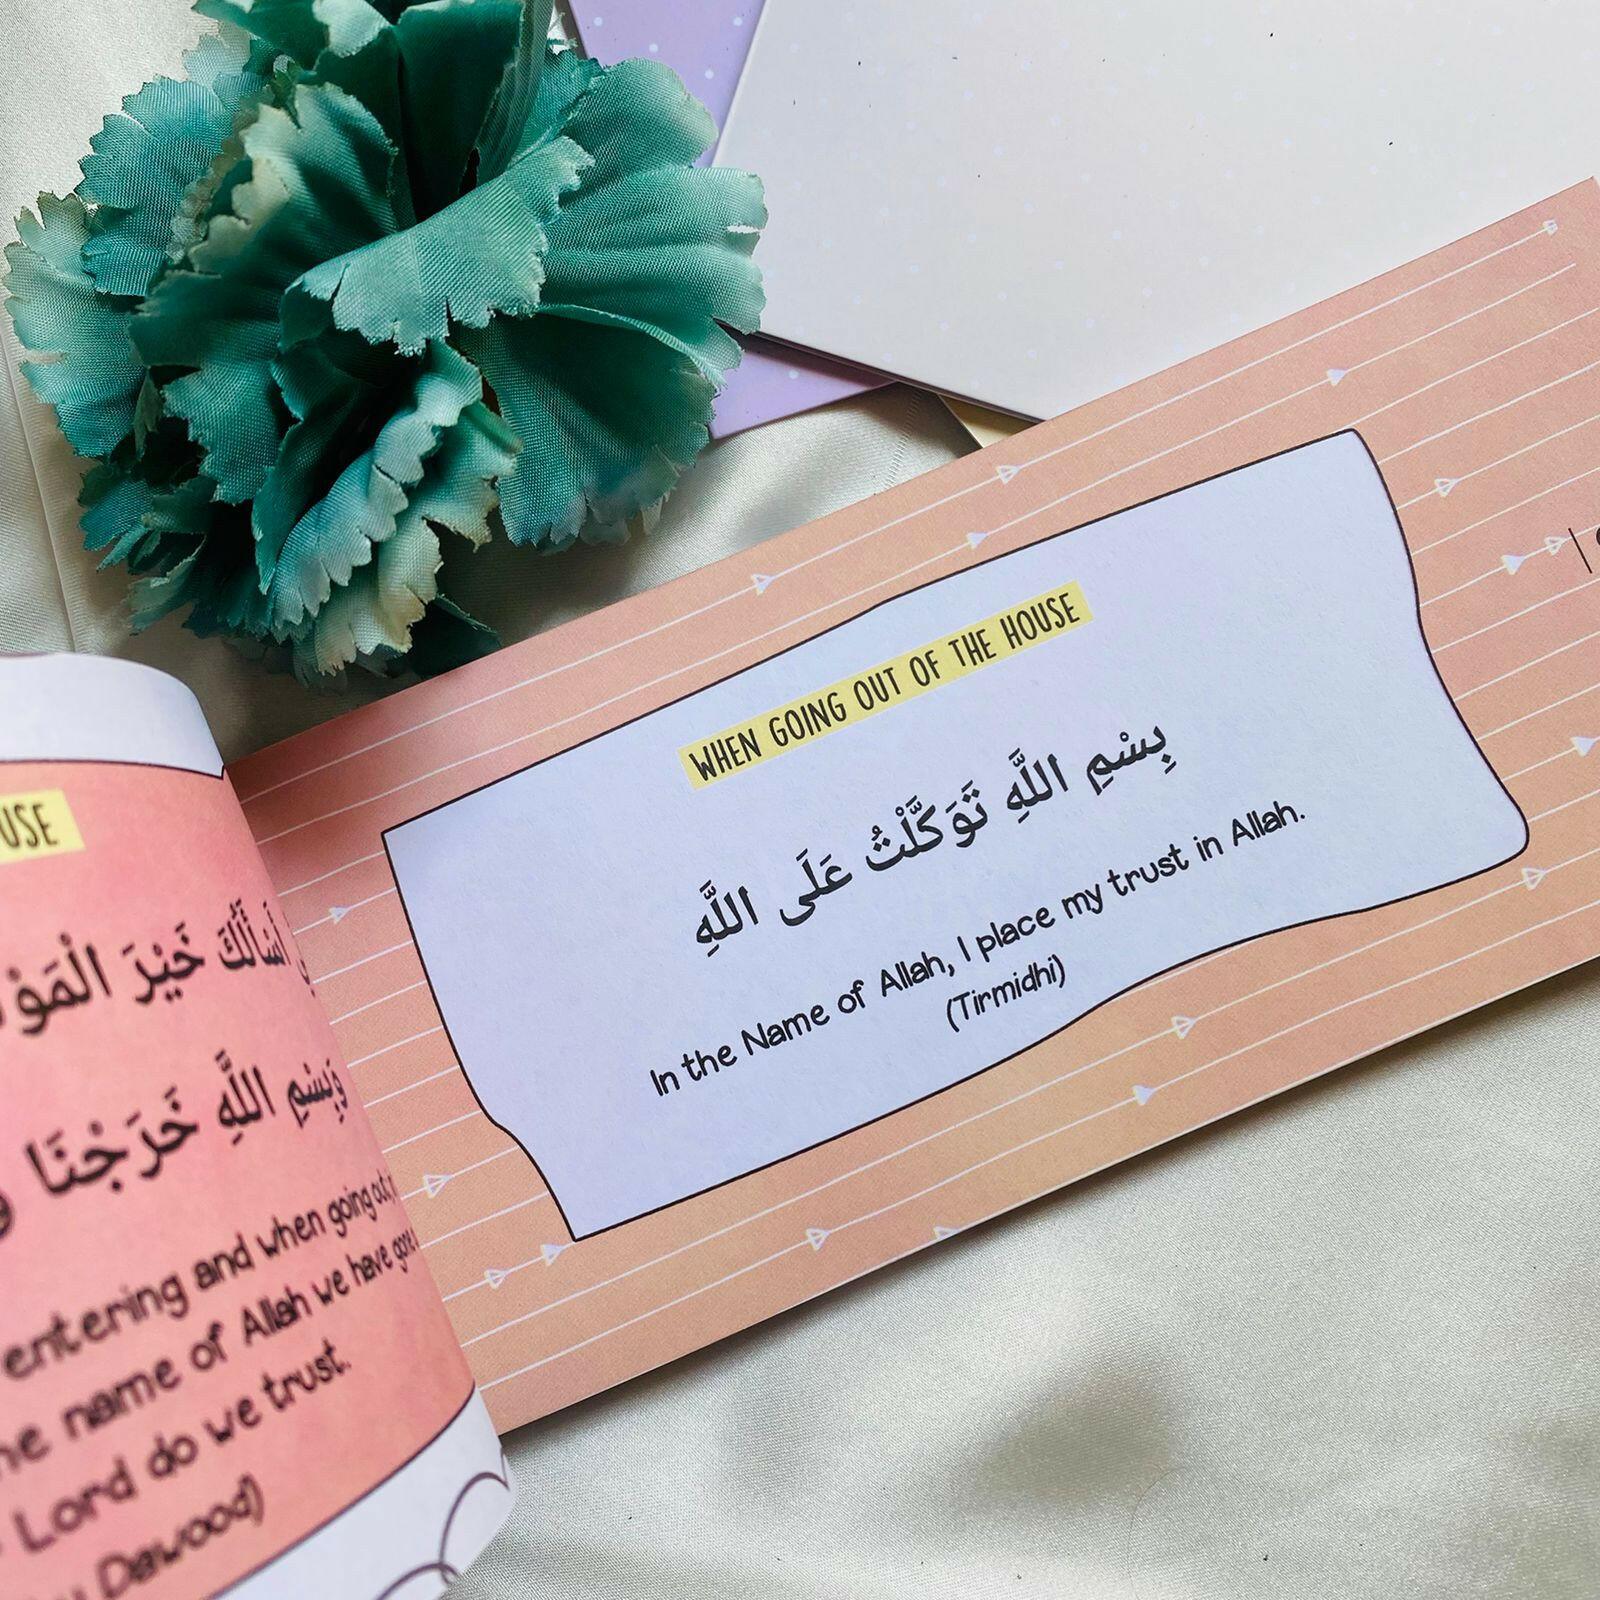 USE
أَسْأَلُكَ خَيْرَ
وَبِسْمِ اللَّهِ خَرَجْنَا
entering and when going out,
name of Allah we have gone
Lord do we trust.
Dawood)
WHEN GOING OUT OF THE HOUSE
بِسْمِ اللَّهِ تَوَكَّلْتُ عَلَى اللَّهِ
In the Name of Allah, I place my trust in Allah.
(Tirmidhi)